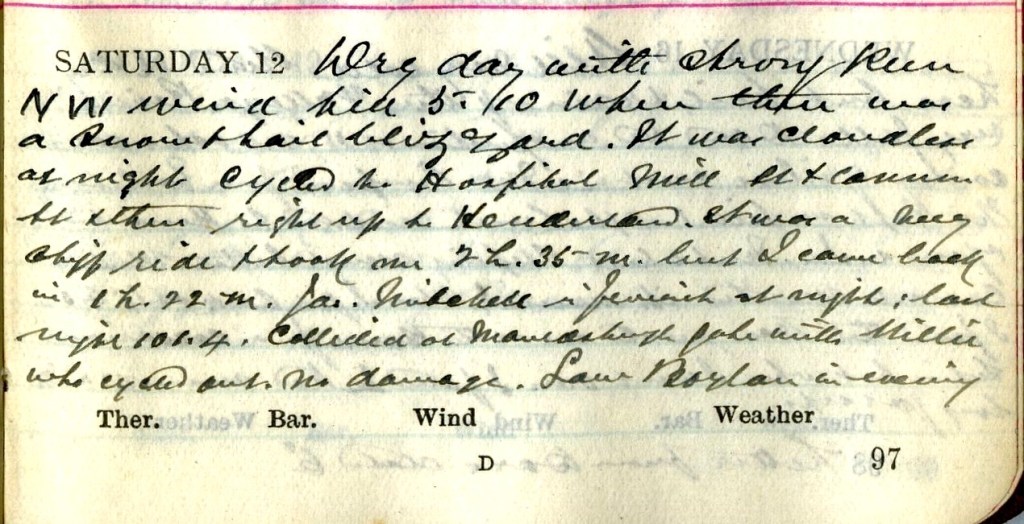 SATURDAY 12 Dry day with strong keen
N W wind till 5.10 when there was
a snow & hail blizzard. It was cloudless
at night Cycled to Hospital Mill &
& then right up to Henderland. It was a very
stiff ride & took me 2 h. 35 m. but I came back
in 1 h. 22 m. Jas. Mitchell is feverish at night: last
night 101.4. Collided at gate with Millie
who cycled out. No damage. Saw Boylan in evening
Ther. Bar. Wind Weather
D 97